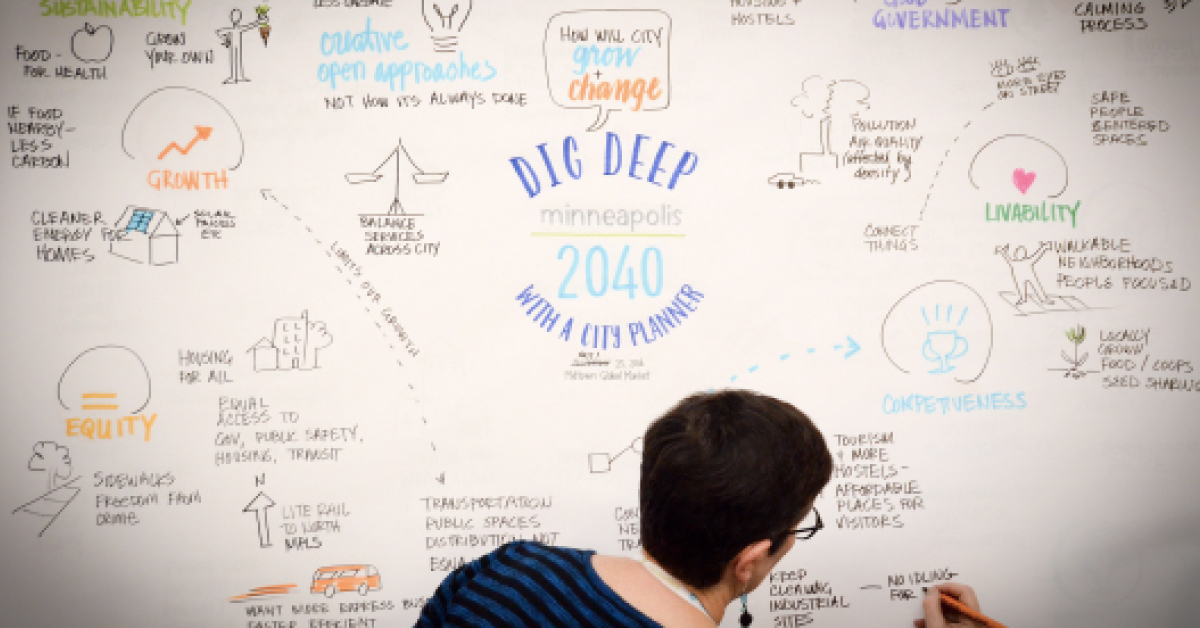 SUSTAINABILITY
FOOD -
FOR HEALTH
GROW
YOUR OWN
IF FOOD
NEARBY -
LESS
CARBON
GROWTH
CLEANER
ENERGY FOR
HOMES
SOLAR
PANELS
ETC
creative
open approaches
NOT HOW IT'S ALWAYS DONE
BALANCE
SERVICES
ACROSS CITY
LIMITS OUR GROWTH
HOW WILL CITY
grow
+
change
DIG DEEP
minneapolis
2040
WITH A CITY PLANNER
25, 2016
Midtown Global Market
HOUSING +
HOSTELS
GOOD
GOVERNMENT
CALMING
PROCESS
POLLUTION
AIR QUALITY
(affected by
density)
MORE EYES
ON STREET
SAFE
PEOPLE
CENTERED
SPACES
CONNECT
THINGS
LIVABILITY
WALKABLE
NEIGHBORHOODS
PEOPLE FOCUSED
LOCALLY
GROWN
FOOD / COOPS
SEED SHARING
COMPETIVENESS
HOUSING
FOR ALL
EQUITY
EQUAL
ACCESS TO
GOV, PUBLIC SAFETY,
HOUSING, TRANSIT
SIDEWALKS
FREEDOM FROM
CRIME
N
LITE RAIL
TO NORTH
MPLS
TRANSPORTATION
PUBLIC SPACES
DISTRIBUTION NOT
WANT MORE EXPRESS
FASTER EFFICIENT
TOURISM
+ MORE
HOSTELS -
AFFORDABLE
PLACES FOR
VISITORS
KEEP
CLEANING
INDUSTRIAL
SITES
NO IDLING
FOR